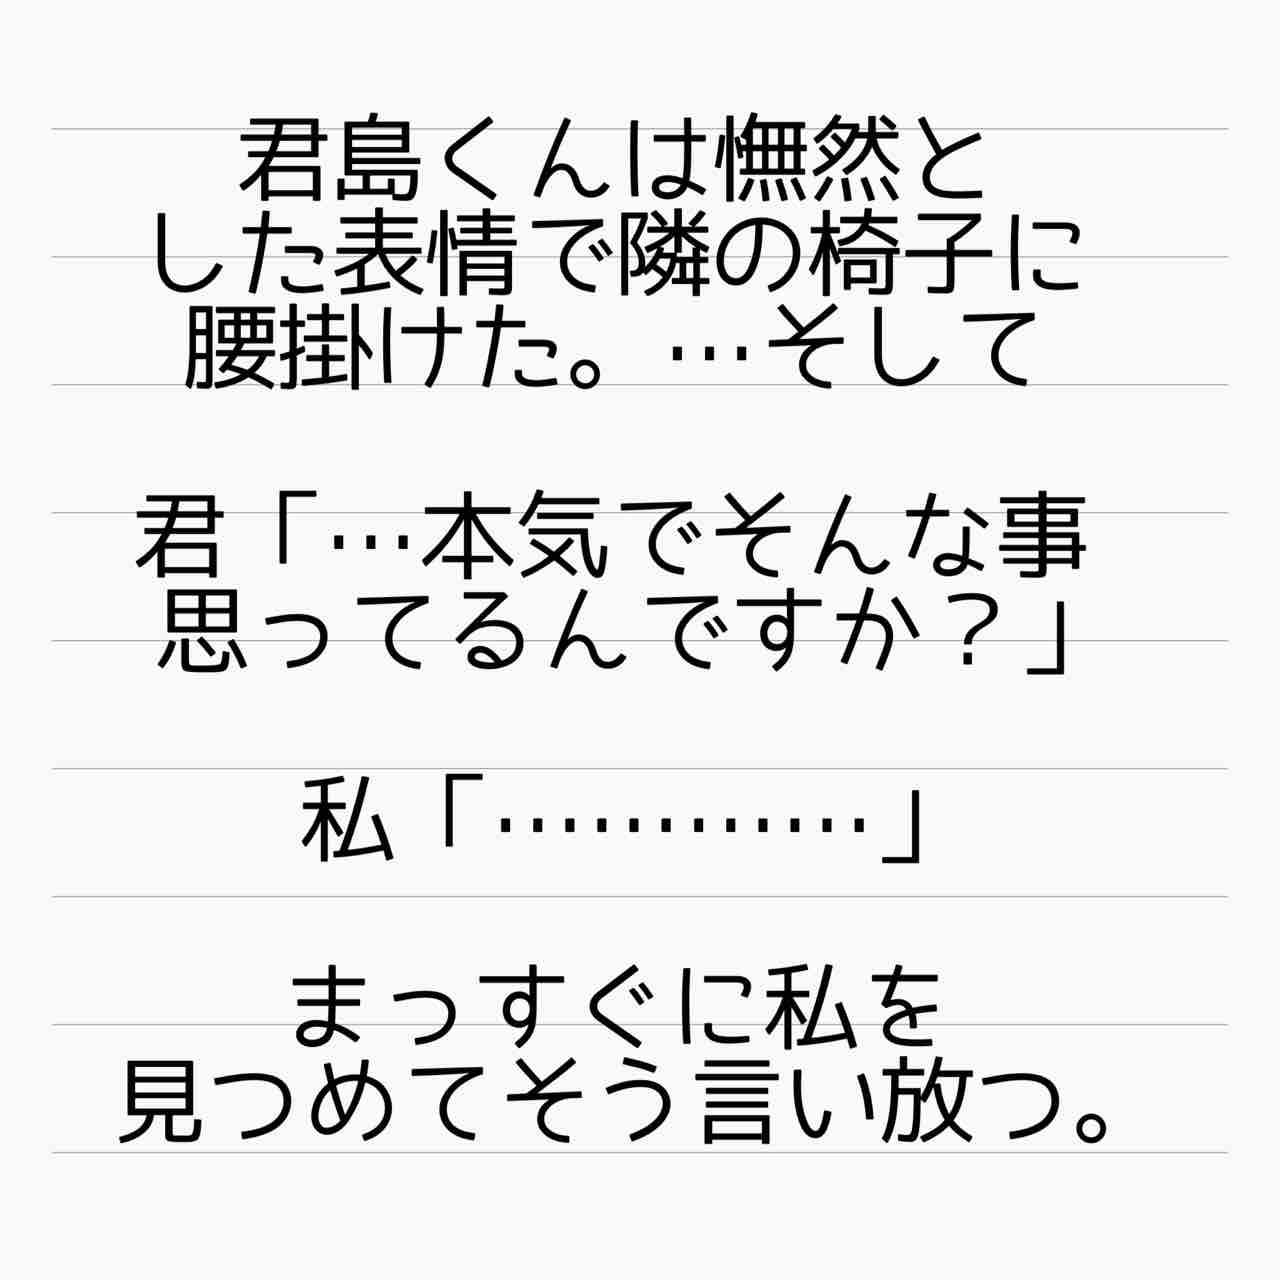 君島くんは憮然と
した表情で隣の椅子に
腰掛けた。…そして
君「…本気でそんな事
思ってるんですか？」
私「…………」
まっすぐに私を
見つめてそう言い放つ。